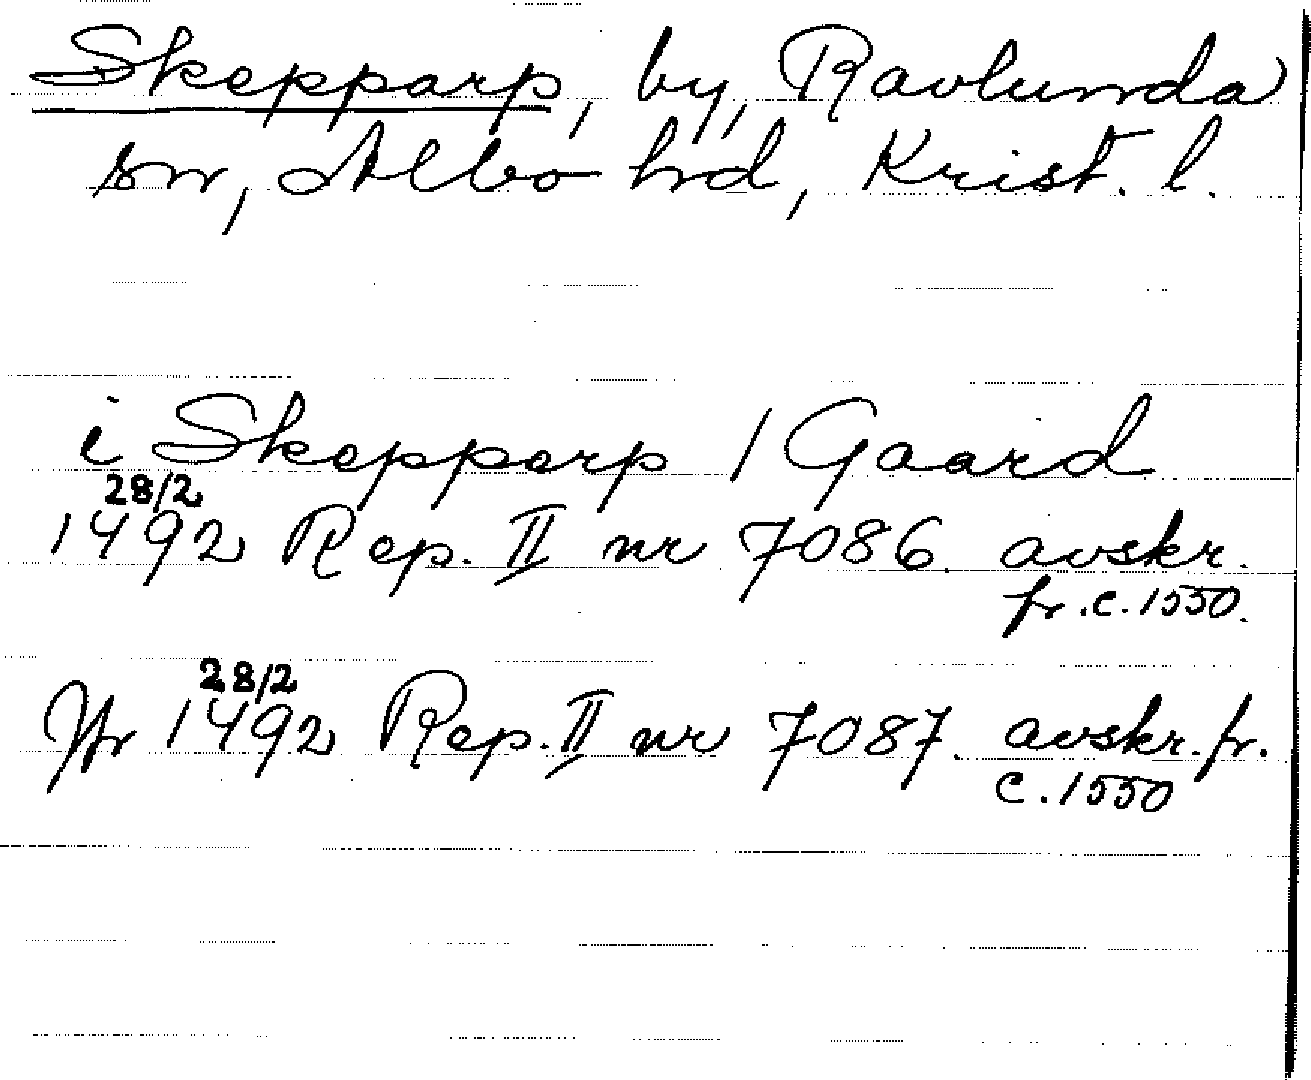 Skepparp, by, Ravlunda
sn, Albo hd, Krist. l.
i Skepparp / Gaard
28/2
1492 Rep. II nr 7086. avskr.
fr. c. 1550.
28/2
Jfr 1492 Rep. II nr 7087. avskr. fr.
c. 1550